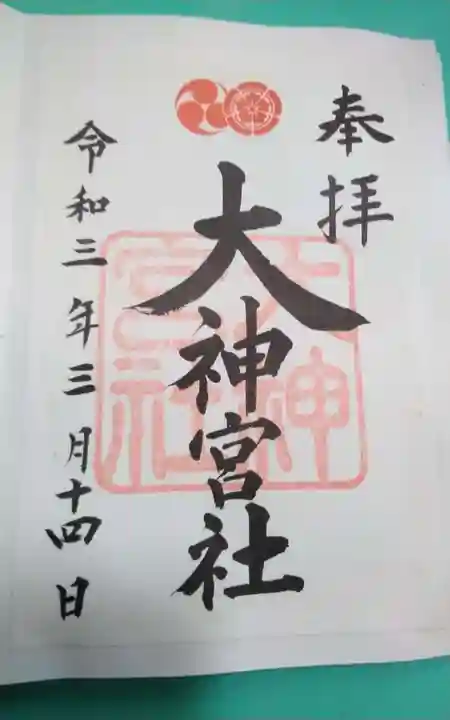 奉拝
大神宮社
令和三年三月十四日
大神
宮社